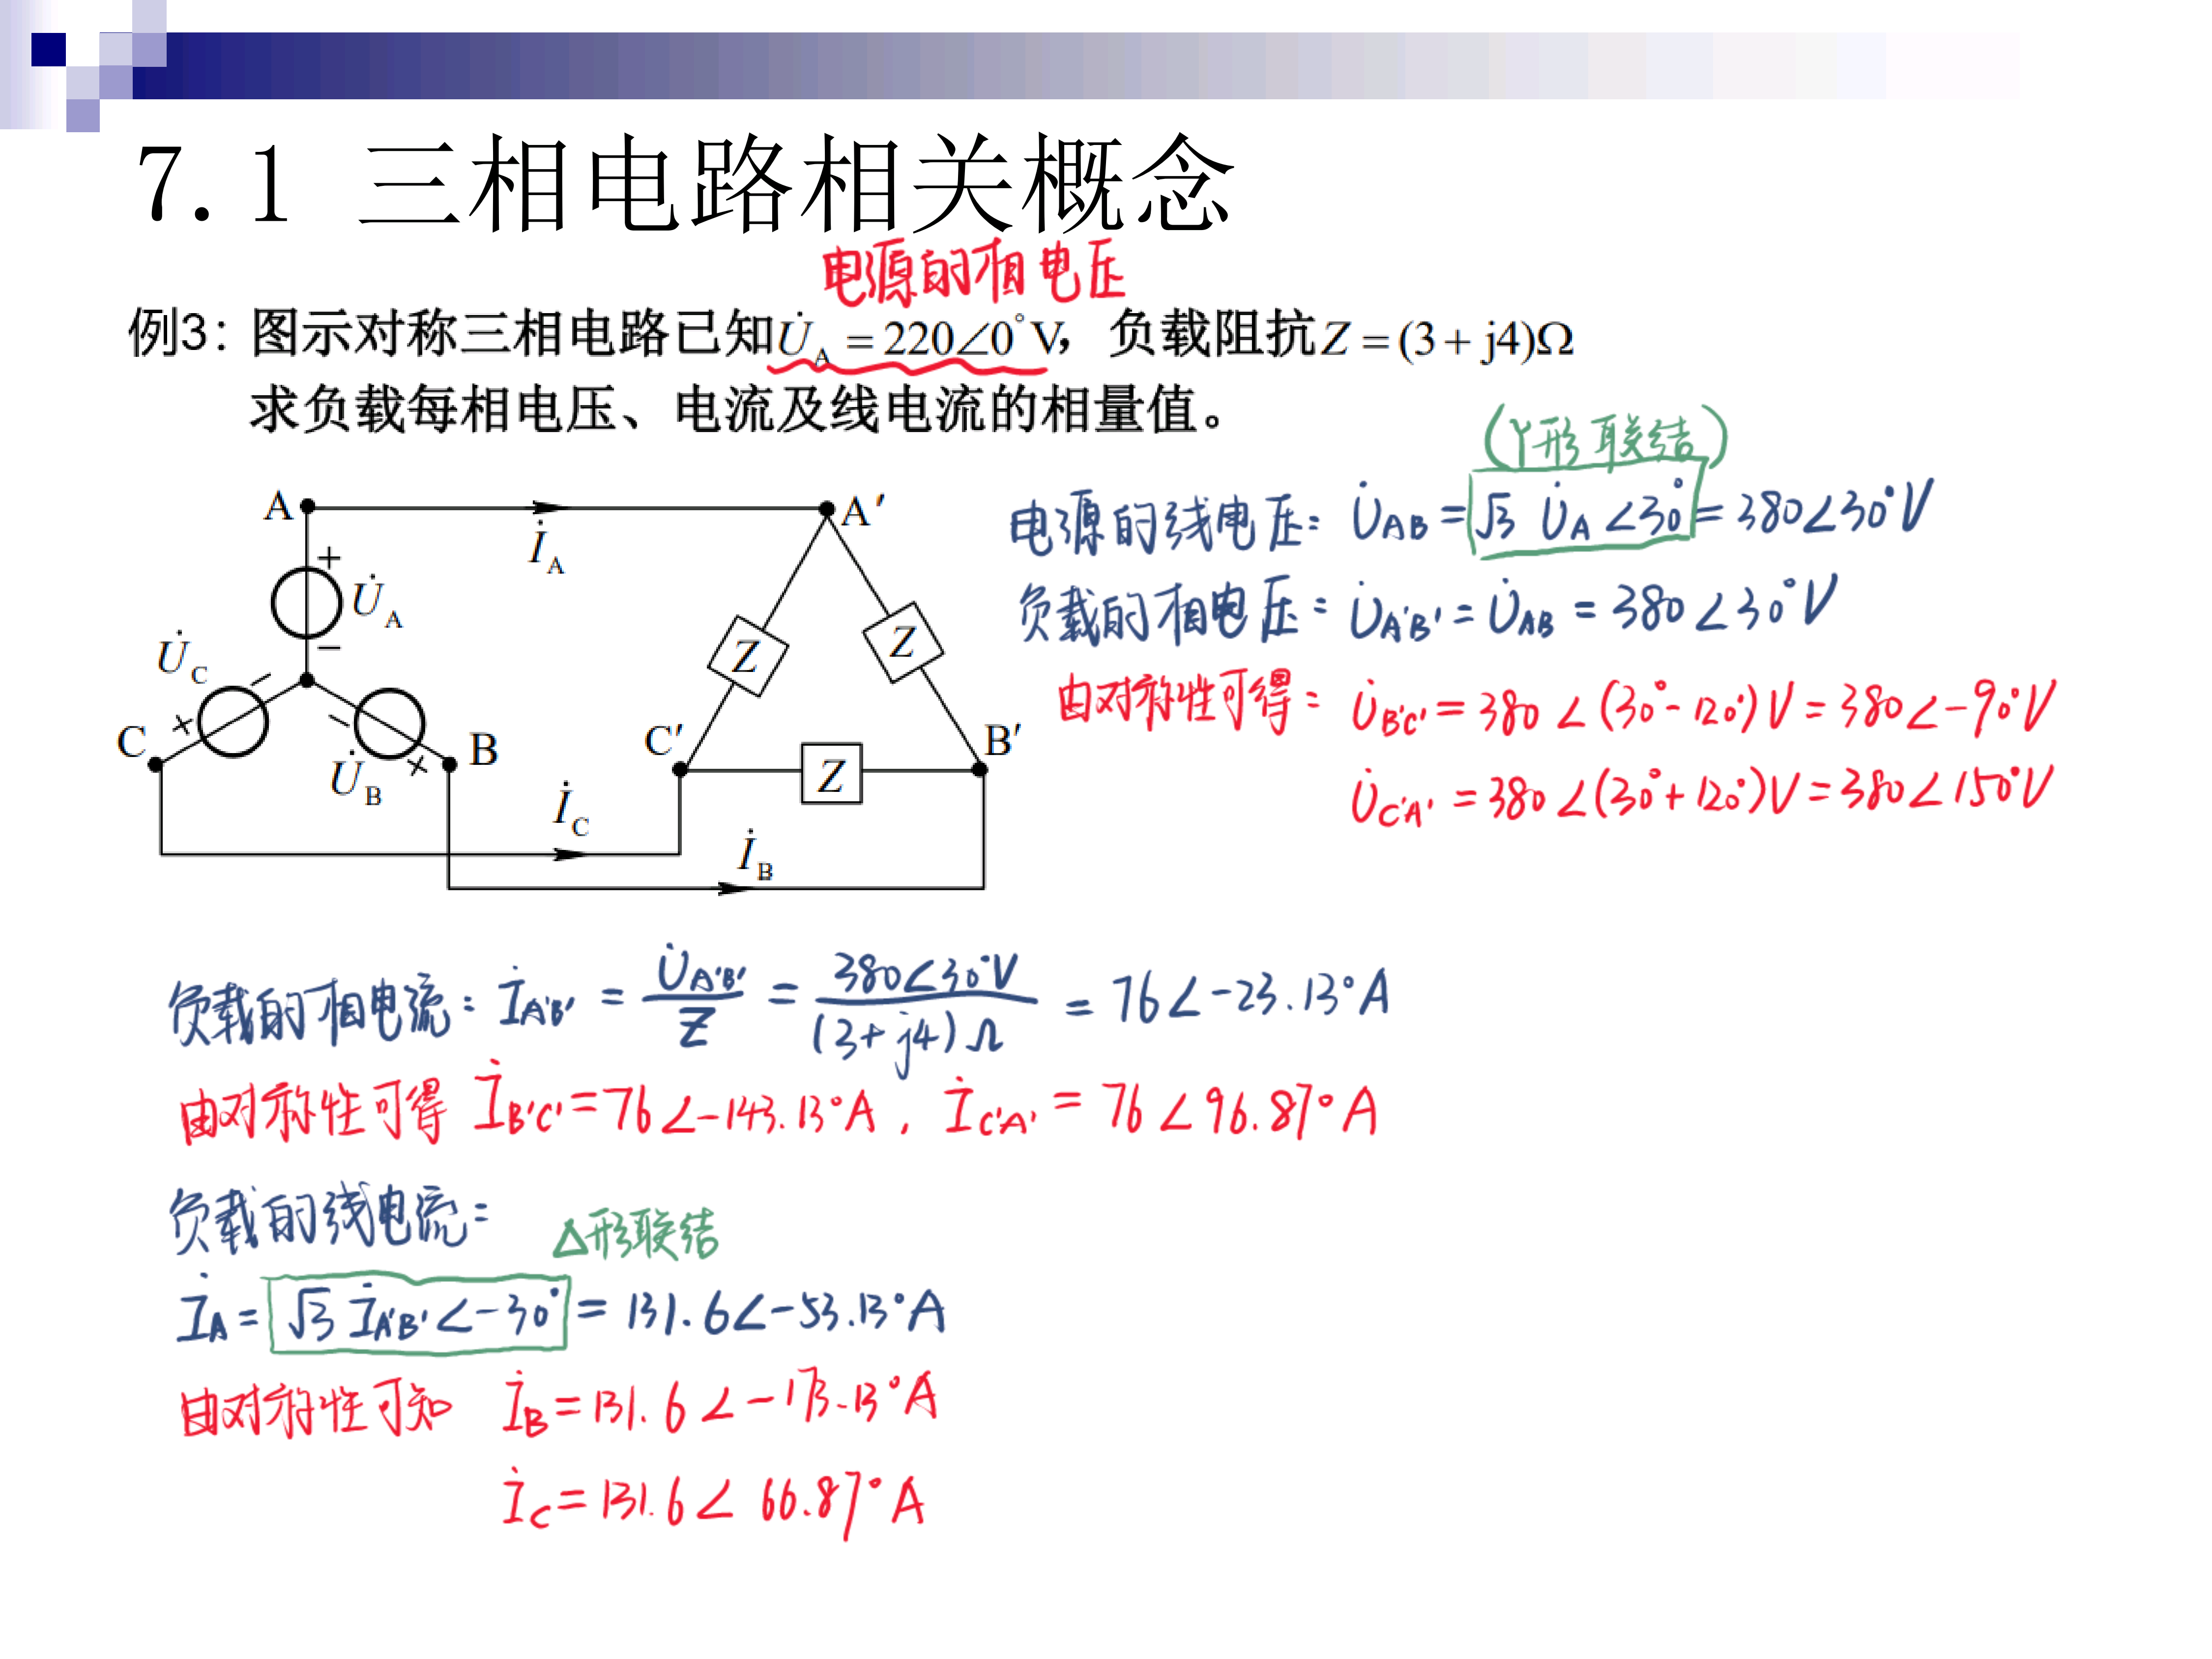 7.1 三相电路相关概念
电源的相电压
例3：图示对称三相电路已知U̇_A = 220∠0°V，负载阻抗Z = (3 + j4)Ω
求负载每相电压、电流及线电流的相量值。
(Y形联结)
电源的线电压: U̇_AB = √3 U̇_A ∠30° = 380∠30°V
负载的相电压: U̇_A'B' = U̇_AB = 380∠30°V
由对称性可得: U̇_B'C' = 380∠(30°-120°)V = 380∠-90°V
U̇_C'A' = 380∠(30°+120°)V = 380∠150°V
A
İ_A
A'
+
U̇_A
−
U̇_C
−
+
C
−
U̇_B
+
B
Z
Z
C'
Z
B'
İ_C
İ_B
负载的相电流: İ_A'B' = U̇_A'B' / Z = 380∠30°V / (3+j4)Ω = 76∠-23.13°A
由对称性可得 İ_B'C' = 76∠-143.13°A, İ_C'A' = 76∠96.87°A
负载的线电流:
△形联结
İ_A = √3 İ_A'B'∠-30° = 131.6∠-53.13°A
由对称性可知 İ_B = 131.6∠-173.13°A
İ_C = 131.6∠66.87°A